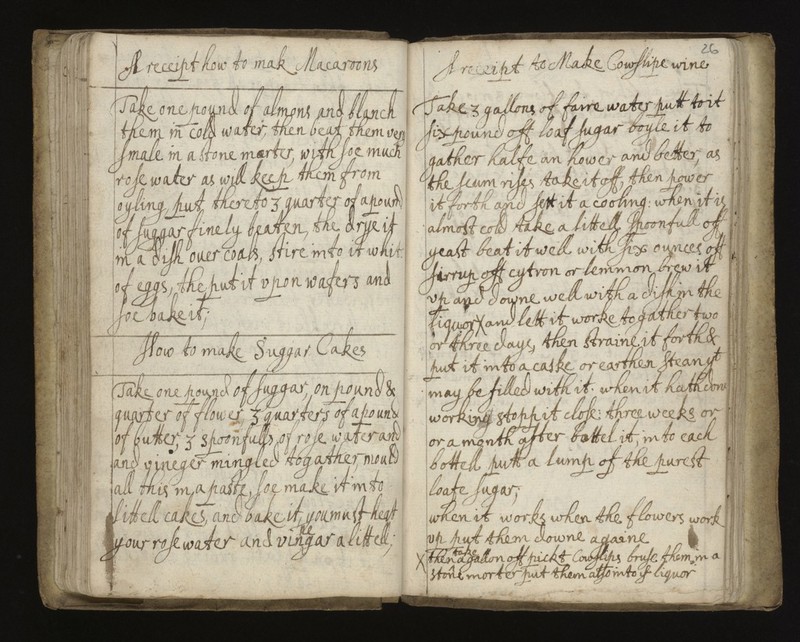 A receipt how to mak Macaroons
Take one pound of almons and blanch
them in cold water, then beat them very
smale in a stone marter, with soe much
rose water as will keep them from
oyling, put thereto 3 quarter of a pound
of suggar finely beaten, the drye it
in a dish over coals, stire into it whit
of eggs, the put it upon wafers and
soe bake it;
How to make Suggar Cakes
Take one pound of suggar, on pound &
quarter of flower, 3 quarters of a pound
of butter, 3 spoonfulls, of rose water and
and vineger mingled togather, mould
all this in a past, soe make it into
littell cakes, and bake it, you must heat
your rose water and vingar a littell;
26
A receipt to Make Cowslipe wine
Take 3 gallons of faire water putt to it
six pound off loaf sugar boyle it to
gather halfe an hower and better, as
the scum rises take it off, then power
it forth and sett it a cooling: when it is
almost cold take a littell spoonfull off
yeast beat it well with six ounces off
sirrup off cytron or lemmon, brew it
vp and downe well with a dish in the
liquor X and lett it worke togather two
or three days, then straine it forth &
put it into a caske or earthen stean yt
may be filled with it when it hath don
working stopp it close: three weeks or
or a month after bottel it, into each
bottell putt a lump of the purest
loafe sugar;
when it works when the flowers work
vp put them downe againe
X then take a gallon off pickt Cowslips bruse them in a
stone morter put them also into ye liquor